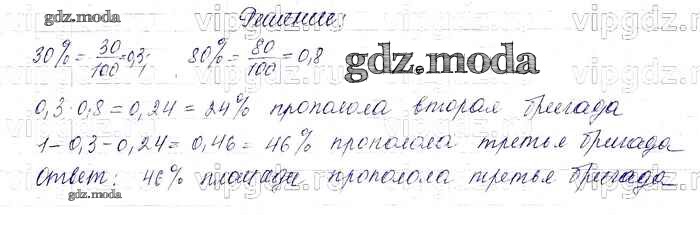 gdz.moda Решение:
30% = 30/100 = 0,3; 80% = 80/100 = 0,8
gdz.moda
0,3 · 0,8 = 0,24 = 24% прополола вторая бригада
1 - 0,3 - 0,24 = 0,46 = 46% прополола третья бригада
Ответ: 46% площади прополола третья бригада
gdz.moda